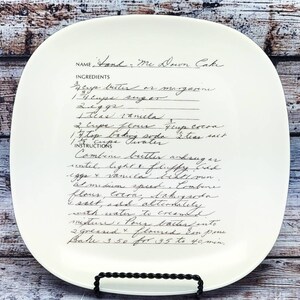 NAME Hand-Me Down Cake
INGREDIENTS
3/4 cup butter or margarine
1 3/4 cups sugar
2 eggs
1 teas vanilla
2 cups flour 3/4 cup cocoa
1 1/4 tsp baking soda 1/2 teas salt
1 1/3 cups water
INSTRUCTIONS
Combine butter & sugar
until light & fluffy add
eggs & vanilla beat 1 min
at medium speed. Combine
flour, cocoa, baking soda
& salt, add alternately
with water to creamed
mixture. Pour batter into
2 greased & floured 9in pans
Bake 350 for 35 to 40 min